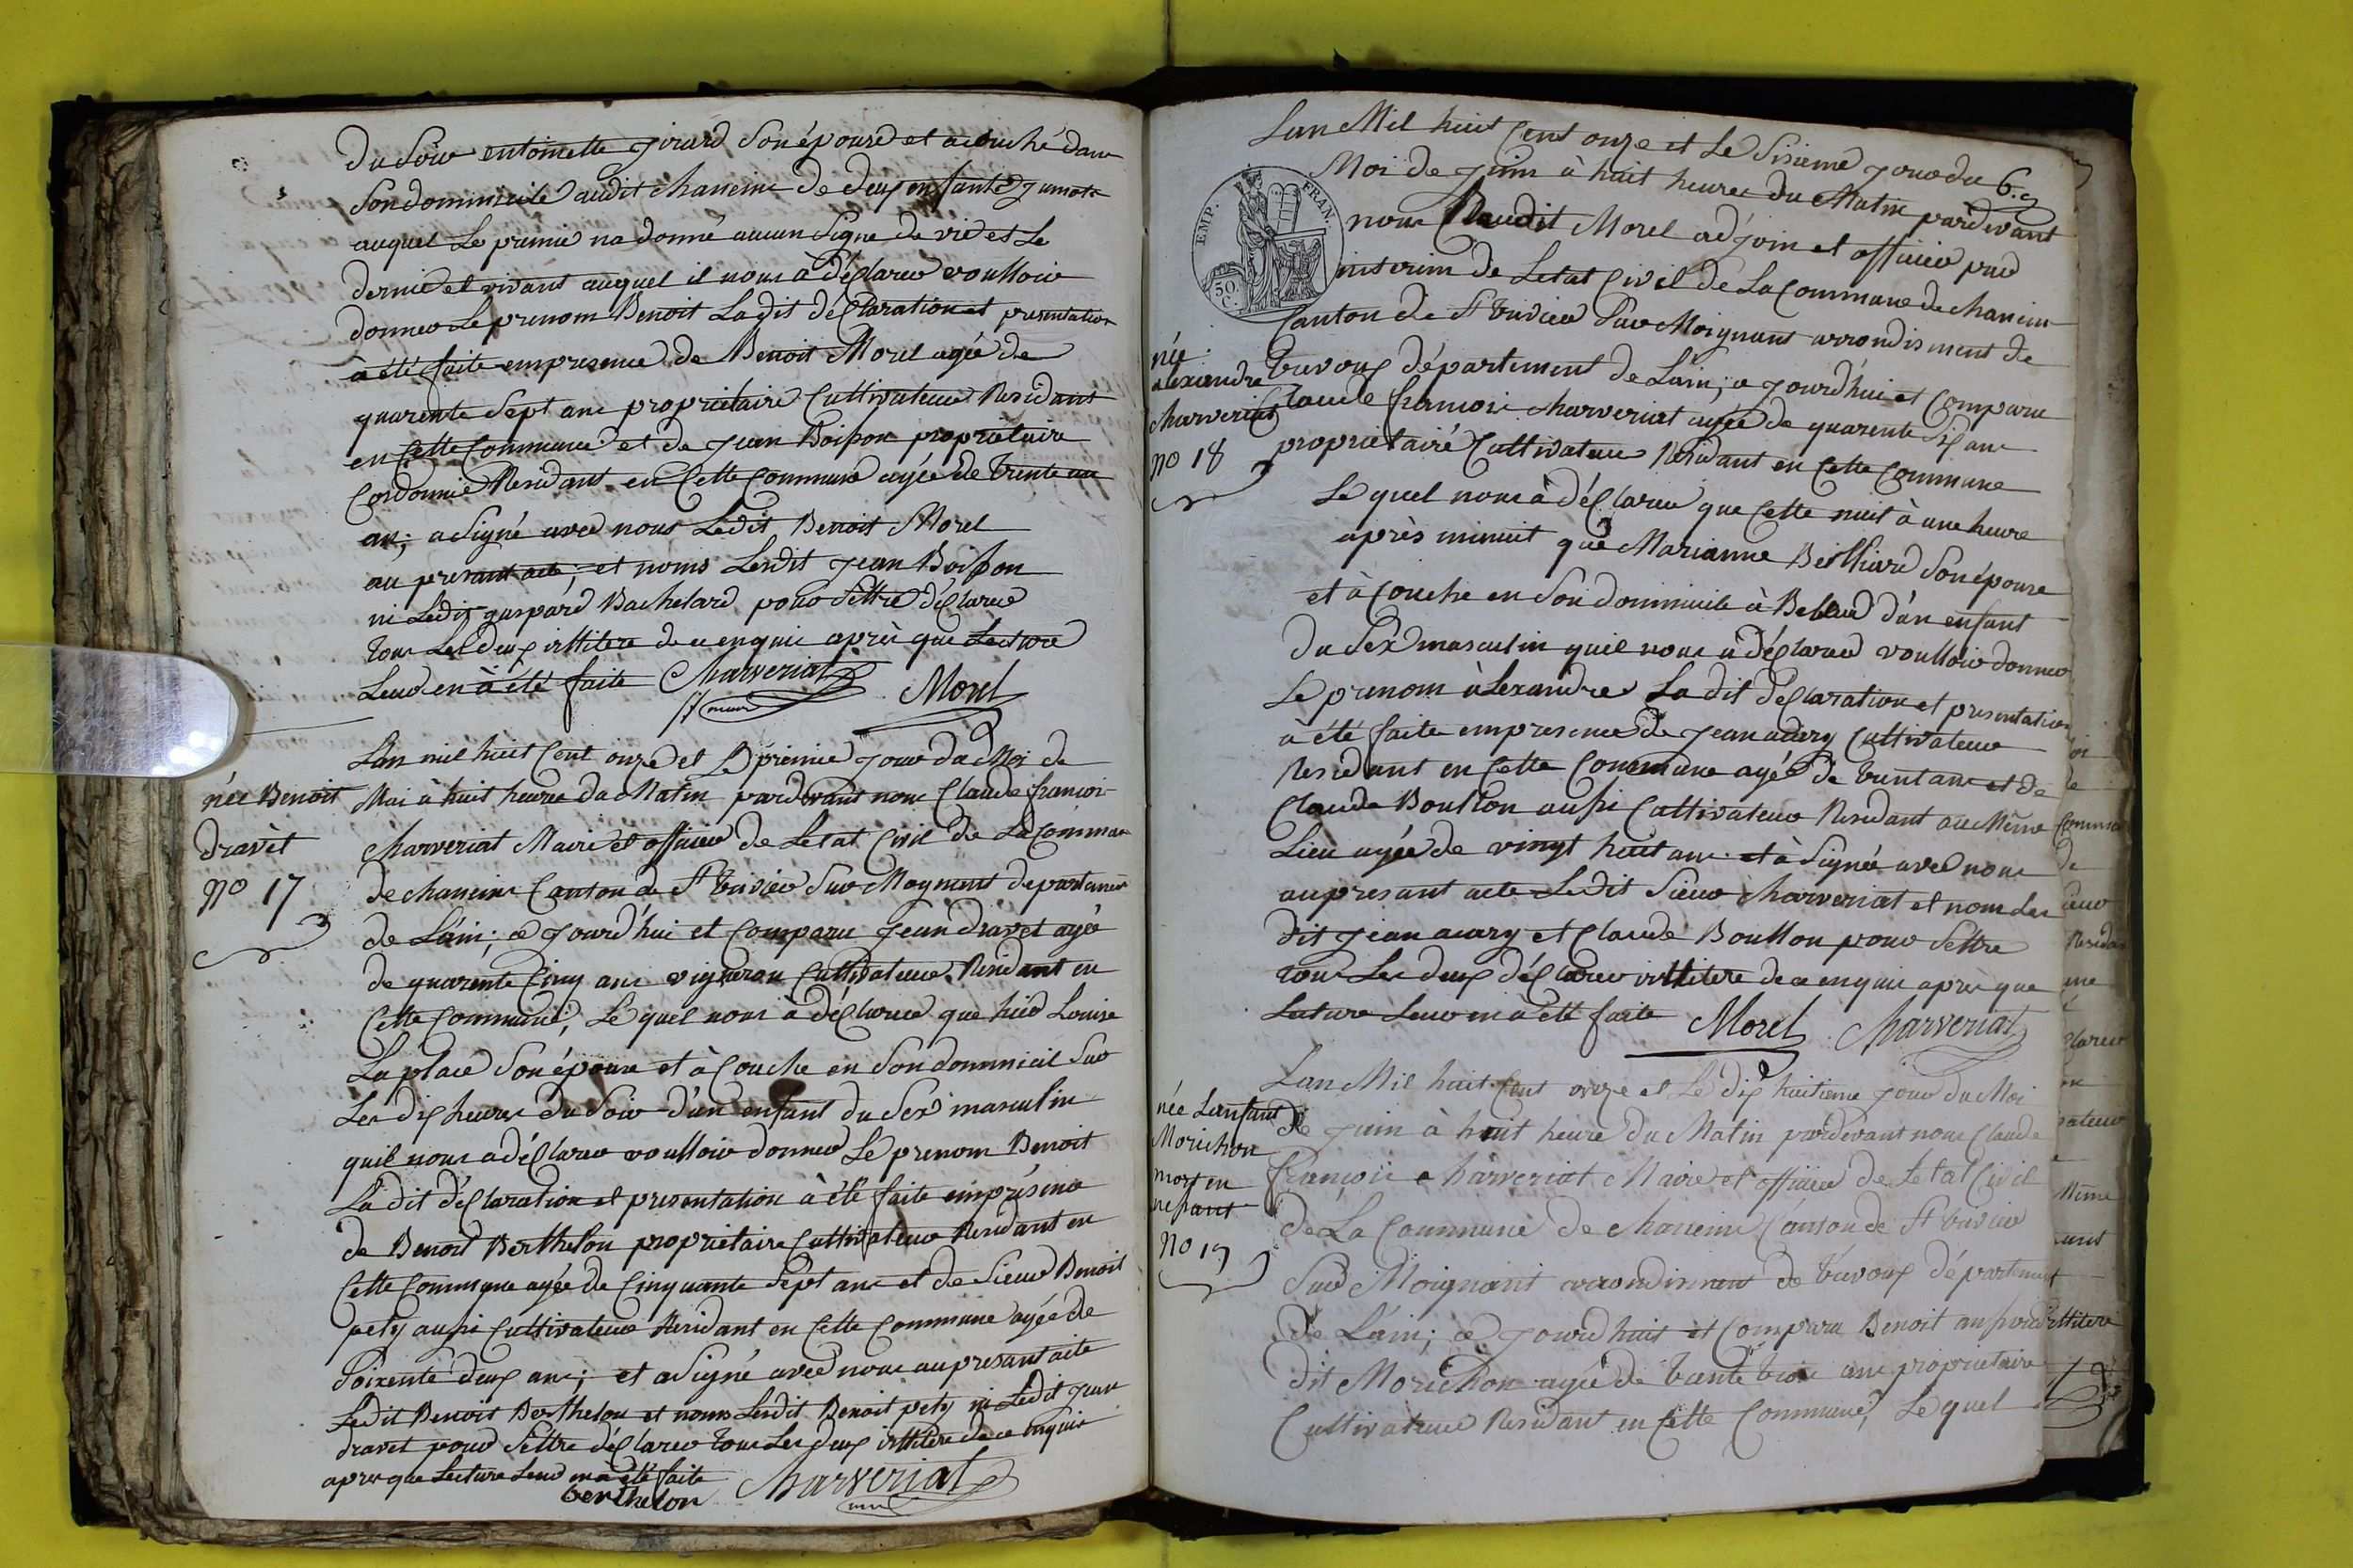 du Soir entoinette Girard Son épouse et acouché dans
Son dominicile audit chaneins de deux enfants Jumots
auquel Le premie na donné aucun Signe de vie et Le
dernie et vivant auquel il nous à déClarer voulloir
donner Le prenom Benoit Ladit déClaration et presentation
à été faite empresence de Benoit Morel agée de
quarente Sept ans proprietaire Cultivateur Residant
en Cette Commune et de Jean Boisson proprietaire
Cordonnie Residant en Cette Commune agée de trente un
an; a Signé avec nous Ledit Benoit Morel
au presant acte; et nonis Lesdit Jean Boisson
ni Ledit gaspard Bachelard pour Settre déClarer
tous Les deux illitere de ce enquis après que Lecture
Leur en à été faite Charveriat Morel
maire
Lan mil huit Cent onze et Le premie jour du Moi de
née Benoit
dravet
no 17
Mai à huit heures du Matin pardevant nous Claude françoi
Charveriat Maire et officier de Letat Civil de La Commune
de chaneins Canton de St trivier Sur Mognens departement
de Lain; ce jourd'hui et Comparu Jean dravet agée
de quarente Cinq ans vigneron Cultivateur Residant en
Cette Commune; Le quel nous à déClarer que hier Louise
Laplace Son épouse et à Couche en Son dommicil Sur
Les dix heures du Soir d'un enfant du Sex masculin
quil nous a déClarer voulloir donner Le prenom Benoit
La dit déClaration et presentation à été faite empresence
de Benoit Berthelon proprietaire Cultivateur Residant en
Cette Commune agée de Cinquante Sept ans et de Sieur Benoit
pety aussi Cultivateur Residant en Cette Commune agée de
Soixente deux ans; et a Signé avec nous au presant acte
Ledit Benoit Berthelon et nonis Lesdit Benoit pety ni Ledit Jean
dravet pour Settre déClarer tous Les deux illitere de ce enquis
apres que Lecture Leur en a été faite
berthelon Charveriat
maire
Lan Mil huit Cent onze et Le Sixieme jour du 6.
Moi de Juin à huit heures du Matin pardevant
nous Claudit Morel adjoin et officier par
EMP. FRAN.
50 C.
interim de Letat Civil de La Commune de chaneins
Canton de St trivier Sur Moignans arrondisment de
née
alexiandre
charveriat
no 18
trevoux département de Lain; ce jourd'hui et Comparu
Claude françois charveriat agée de quarente Six ans
proprietaire Cultivateur Residant en Cette Commune
Le quel nous à déClarer que Cette nuit à une heure
après minuit que Marianne Beilliard Son épouse
et à Couche en Son dommicile à d'un enfant
du Sex masculin quil nous a déClarer voulloir donner
Le prenom àLexandre La dit déClaration et presentation
à été faite empresence de Jean aucry Cultivateur
Residant en Cette Commune agée de trent ans et de
Claude Boullon aussi Cultivateur Residant au Même
Lieu agée de vingt huit ans et à Signée avec nous
au presant acte Ledit Sieur charveriat et nom Les
dit Jean aucry et Claude Boullon pour Settre
tous Les deux déClarer illitere de ce enquis après que
Lecture Leur en à été faite Morel Charveriat
Lan Mil huit Cent onze et Le dix huitieme jour du Moi
née Lenfant
Morichon
mort en
nessant
no 19
de Juin à huit heure du Matin pardevant nous Claude
françois charveriat Maire et officier de Letat Civil
de La Commune de chaneins Canton de St trivier
Sur Moignans arrondisment de trevoux département
de Lain; ce jourd'huit et Comparu Benoit
dit Morichon agée de trente trois ans proprietaire
Cultivateur Residant en Cette Commune; Le quel